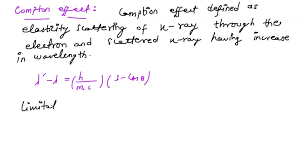 Compton effect: Compton effect defined as
elasticity scattering of x-ray through the
electron and scattered x-ray having increase
in wavelength.
λ' - λ = (h/m.c) (1 - cosθ)
Limitat